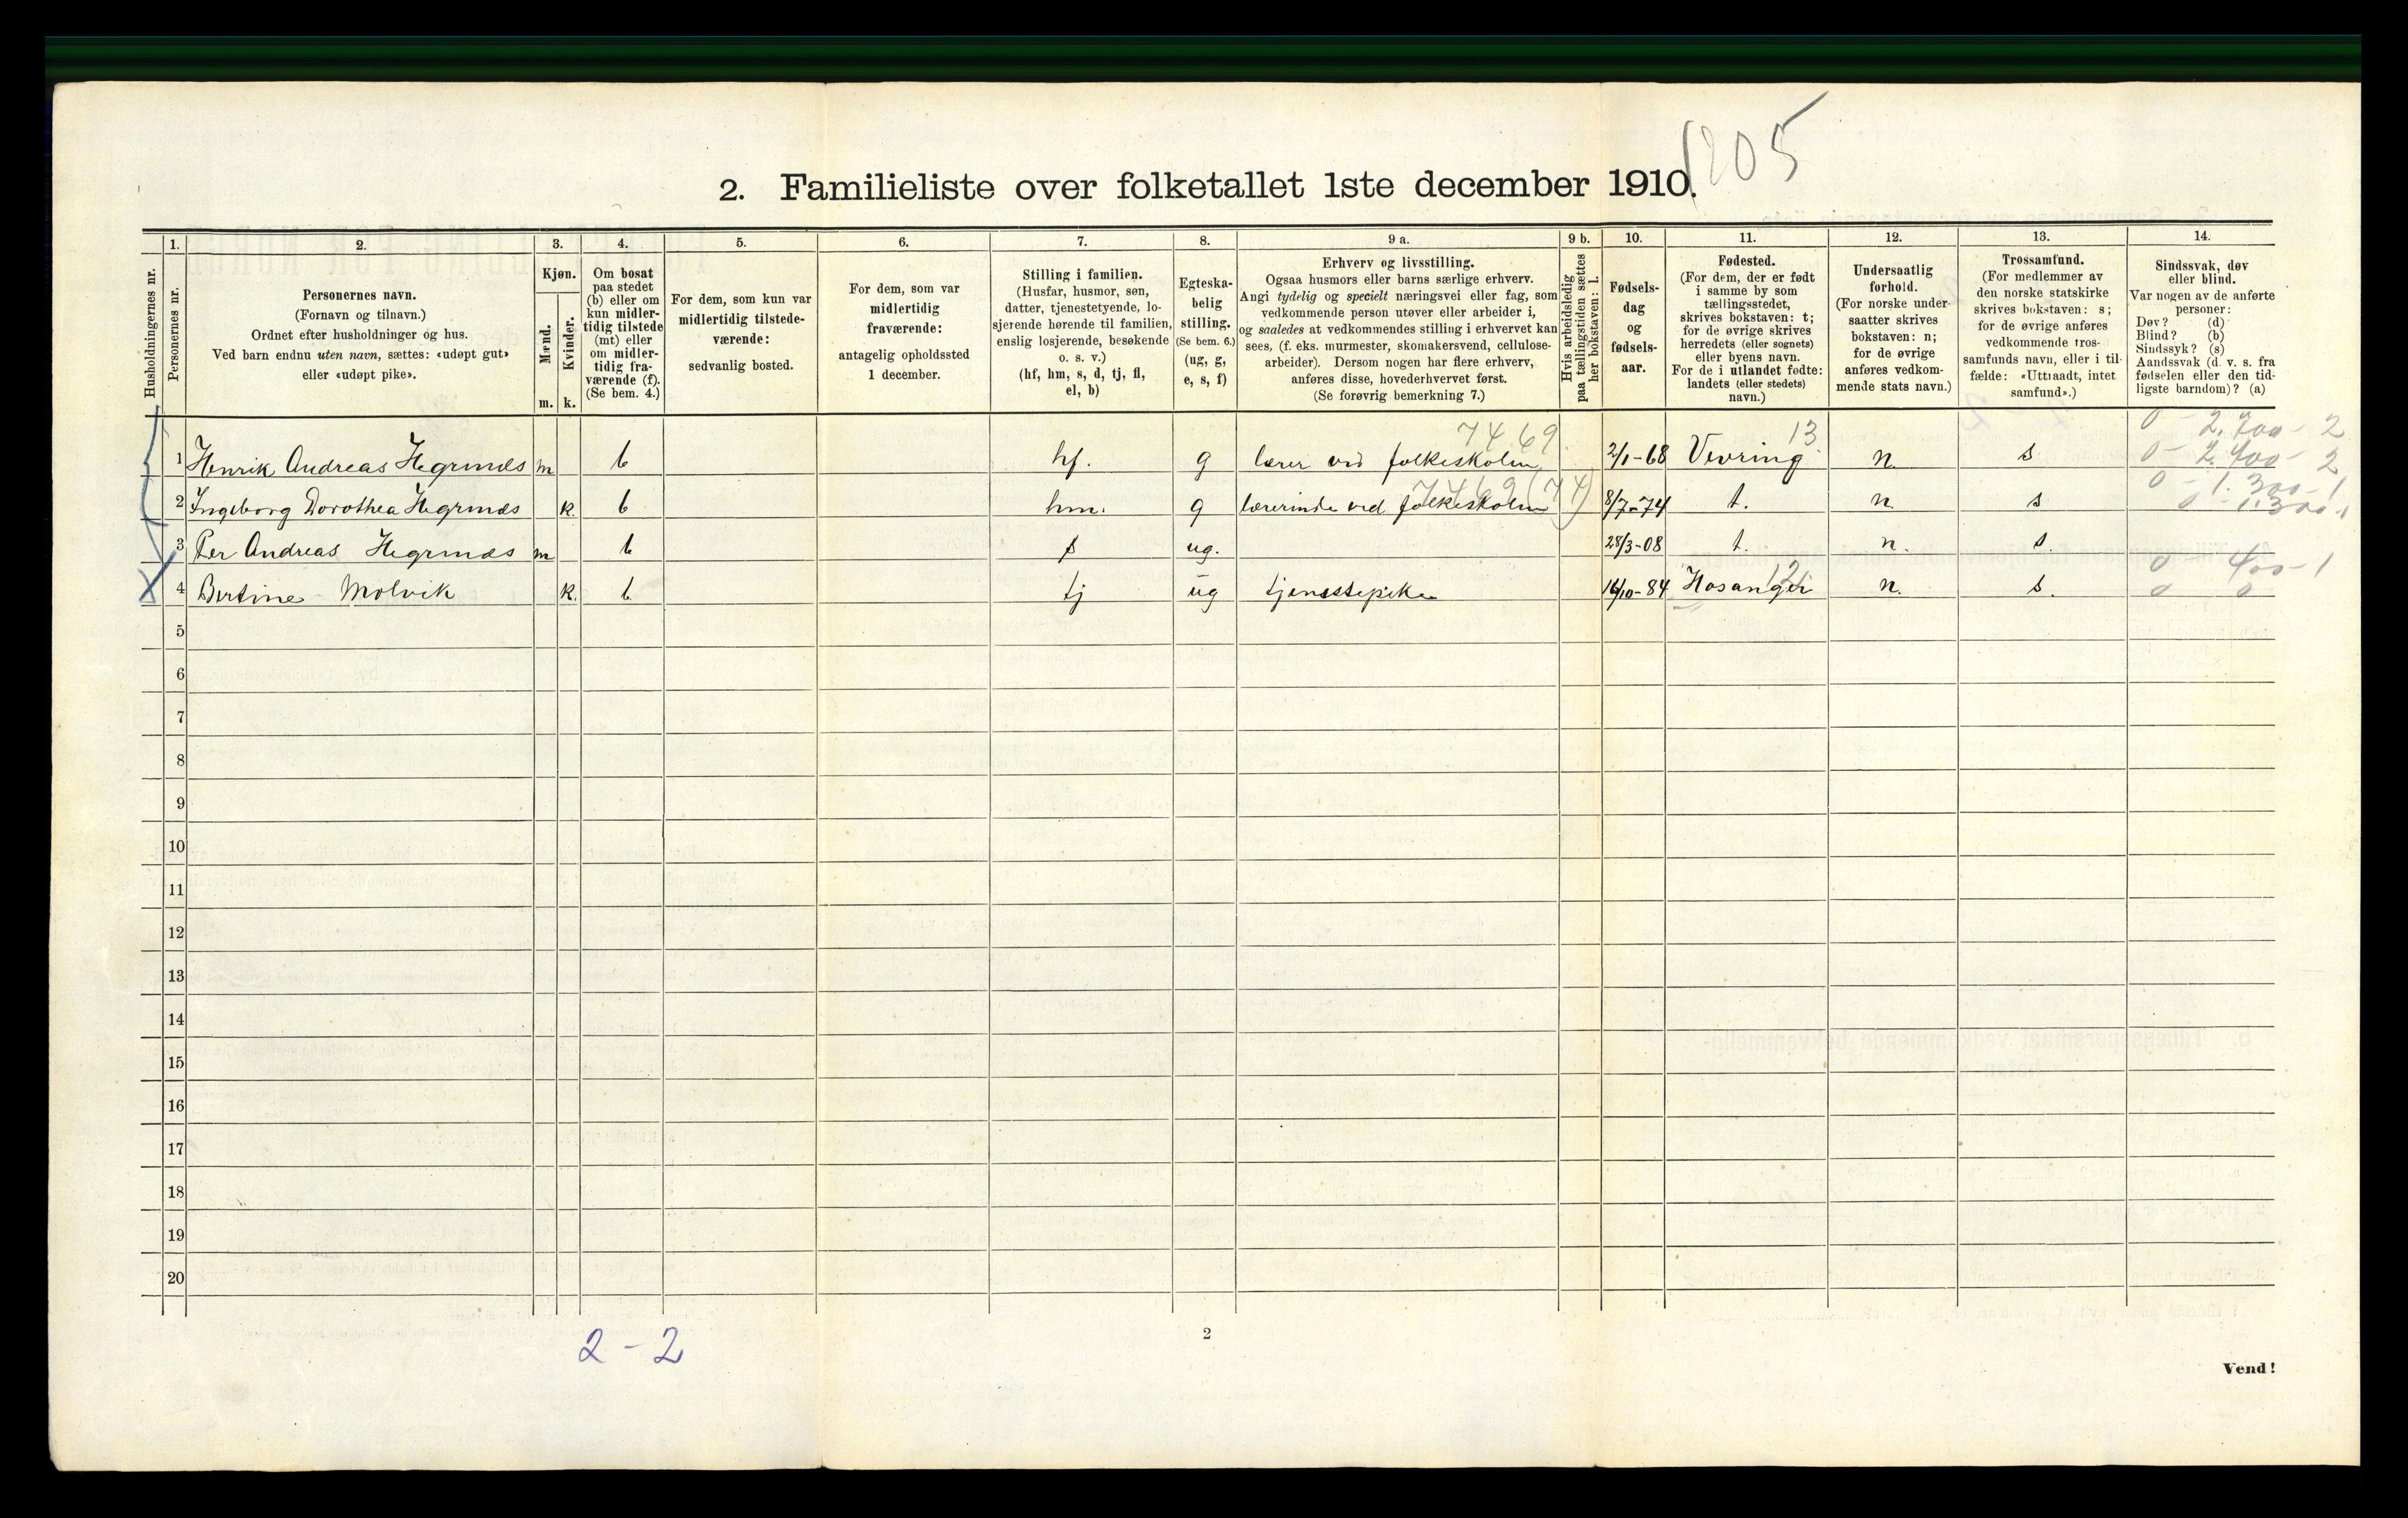 1205
2. Familieliste over folketallet 1ste december 1910.
Husholdningernes nr.
1. Personernes nr.
2. Personernes navn. (Fornavn og tilnavn.) Ordnet efter husholdninger og hus. Ved barn endnu uten navn, sættes: «udøpt gut» eller «udøpt pike».
3. Kjøn. Mænd. m. Kvinder. k.
4. Om bosat paa stedet (b) eller om kun midlertidig tilstede (mt) eller om midlertidig fraværende (f). (Se bem. 4.)
5. For dem, som kun var midlertidig tilstedeværende: sedvanlig bosted.
6. For dem, som var midlertidig fraværende: antagelig opholdssted 1 december.
7. Stilling i familien. (Husfar, husmor, søn, datter, tjenestetyende, losjerende hørende til familien, enslig losjerende, besøkende o. s. v.) (hf, hm, s, d, tj, fl, el, b)
8. Egteskabelig stilling. (Se bem. 6.) (ug, g, e, s, f)
9 a. Erhverv og livsstilling. Ogsaa husmors eller barns særlige erhverv. Angi tydelig og specielt næringsvei eller fag, som vedkommende person utøver eller arbeider i, og saaledes at vedkommendes stilling i erhvervet kan sees, (f. eks. murmester, skomakersvend, cellulosearbeider). Dersom nogen har flere erhverv, anføres disse, hovederhvervet først. (Se forøvrig bemerkning 7.)
9 b. Hvis arbeidsledig paa tællingstiden sættes her bokstaven: l.
10. Fødselsdag og fødselsaar.
11. Fødested. (For dem, der er født i samme by som tællingsstedet, skrives bokstaven: t; for de øvrige skrives herredets (eller sognets) eller byens navn. For de i utlandet fødte: landets (eller stedets) navn.)
12. Undersaatlig forhold. (For norske undersaatter skrives bokstaven: n; for de øvrige anføres vedkommende stats navn.)
13. Trossamfund. (For medlemmer av den norske statskirke skrives bokstaven: s; for de øvrige anføres vedkommende trossamfunds navn, eller i tilfælde: «Uttraadt, intet samfund».)
14. Sindssvak, døv eller blind. Var nogen av de anførte personer: Døv? (d) Blind? (b) Sindssyk? (s) Aandssvak (d. v. s. fra fødselen eller den tidligste barndom)? (a)
7469 13 0 - 2.700 - 2
1 Henrik Andreas Hegrenæs m b hf. g lærer ved folkeskolen 2/1-68 Vevring n. s 0 - 2.400 - 2
7469 (74) 0 - 1.300 - 1
2 Ingeborg Dorothea Hegrenæs k b hm. g lærerinde ved folkeskolen 8/7-74 t. n s 0 - 1.300-1
3 Per Andreas Hegrenæs m b s ug. 28/3-08 t. n. s.
12 0 400 - 1
4 Bertine Molvik k. b tj ug tjenestepike 16/10-84 Hosanger n. s. 0 0
5
6
7
8
9
10
11
12
13
14
15
16
17
18
19
20
2 - 2
2
Vend!